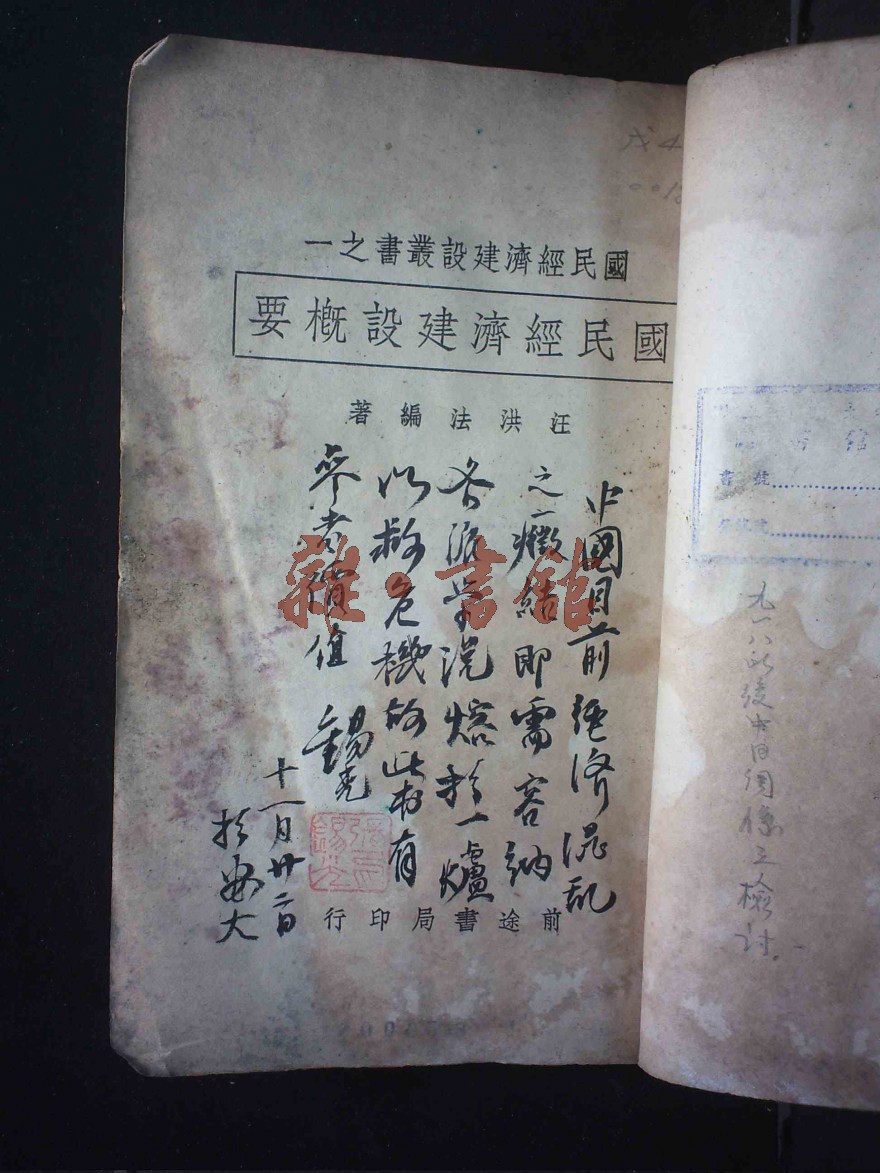 國民經濟建設叢書之一
國民經濟建設槪要
汪洪法編著
中國目前經济混乱
之一癥結即需容納
各派学说熔於一爐
以救危機故此书有
参考價值
錫光
十一月廿二日
於安大
前途書局印行
雜·書館
書號
九一八以後中日関係之檢讨